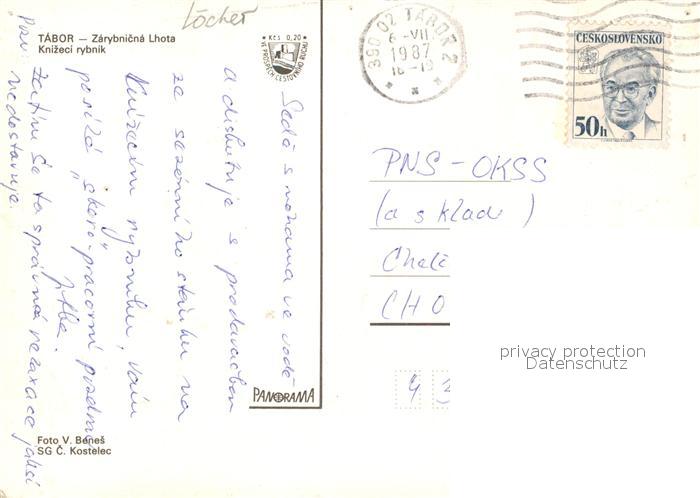 Löcher
TÁBOR — Zárybničná Lhota
Knížecí rybník
Kčs 0,20
VE PROSPĚCH CESTOVNÍHO RUCHU
390 02 TÁBOR 2
6-VII
1987
18-19
ČESKOSLOVENSKO
50h
Sedě s nohama ve vodě
a diskutuje s prodavačkou
ze sezónního stánku na
Knížecím rybníku, vám
posílá „skoro" pracovní pozdrav
Jitka.
Pozn: Zatím se ta správná relaxace jaksi
nedostavuje.
PNS - OKSS
(a sklad)
CHO
PANORAMA
privacy protection
Datenschutz
Foto V. Beneš
SG Č. Kostelec